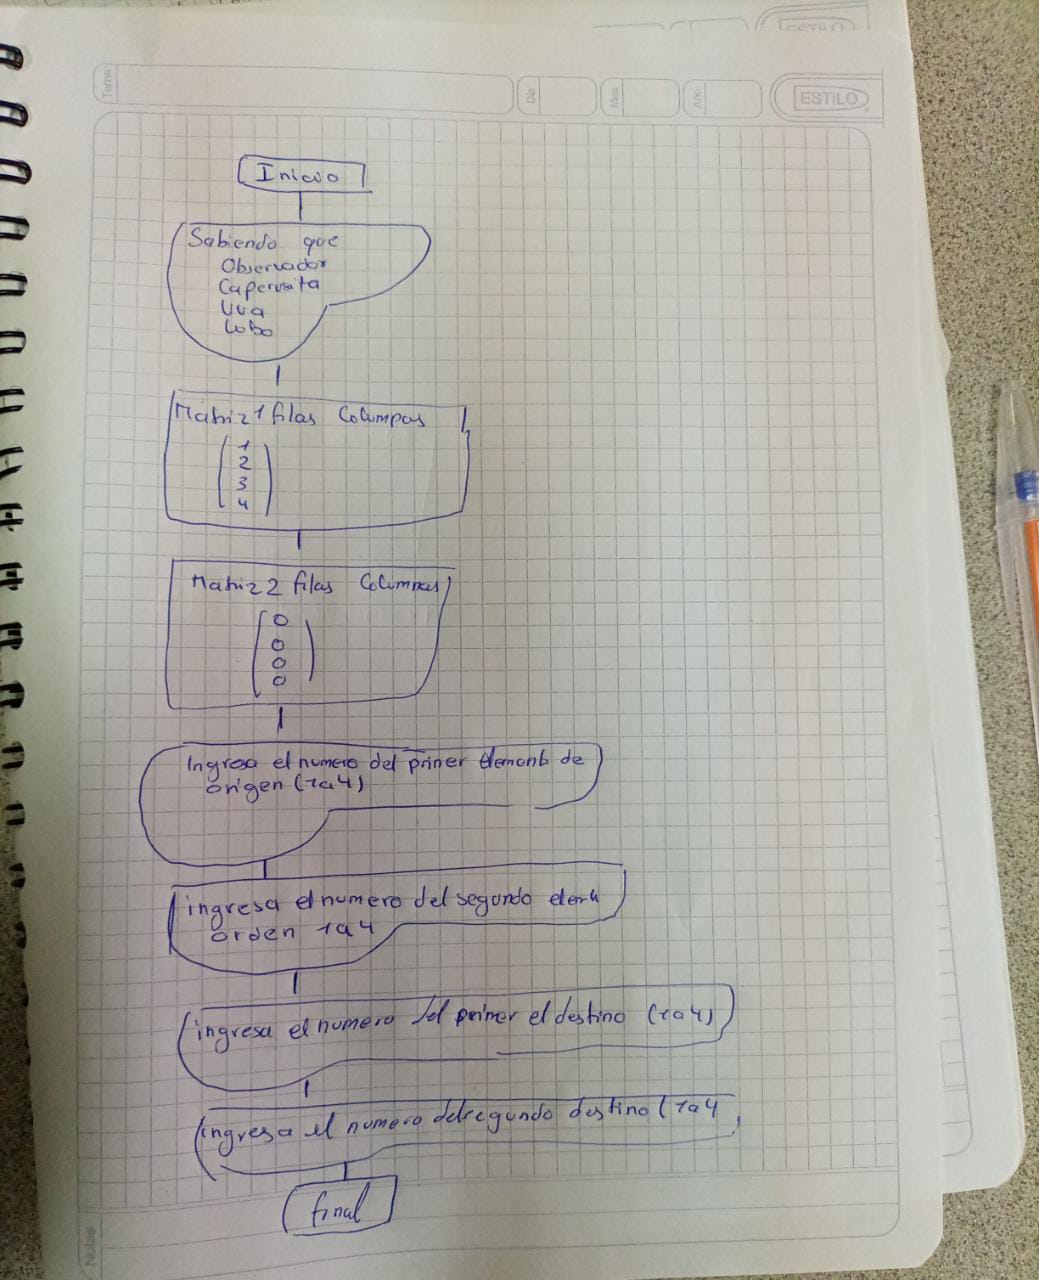 Tema
Dia
Mes
Año
ESTILO
Inicio
Sabiendo que
Observador
Caperusita
Uva
Lobo
Matriz 1 filas Columnas
1
2
3
4
Matriz 2 filas Columnas
0
0
0
0
Ingresa el numero del primer elemento de
origen (1a4)
ingresa el numero del segundo
orden 1a4
ingresa el numero del primer el destino (1a4)
ingresa el numero del segundo destino (1a4
final
Notas